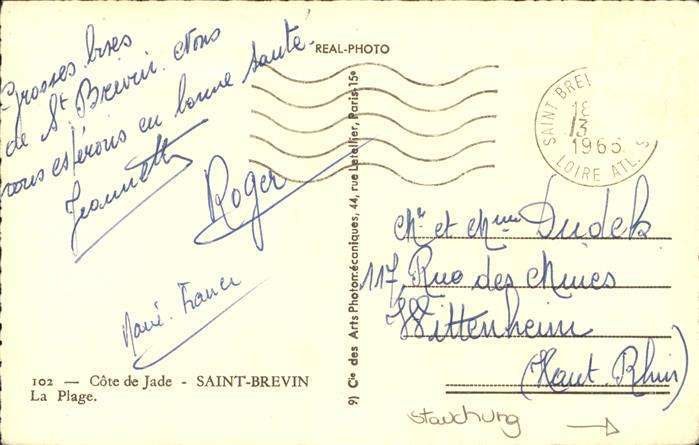 Grosses bises
de St Brévin. Nous
vous espérons en bonne santé.
Jeannette
Roger
Marie-France
102 — Côte de Jade - SAINT-BREVIN
La Plage.
REAL-PHOTO
9) Cie des Arts Photomécaniques, 44, rue Letellier, Paris-15e
SAINT BREV
18
13
1965
LOIRE ATL.
Mr et Mme Dudek
117, Rue des Mines
Wittenheim
(Haut Rhin)
stauchung →